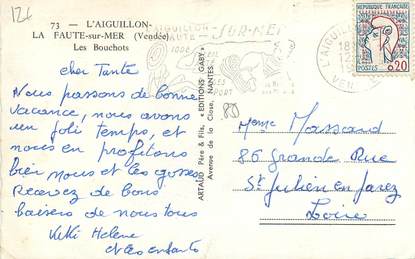 12f
73 - L'AIGUILLON-
LA FAUTE-sur-MER (Vendée)
Les Bouchots
L'AIGUILLON
SUR-MER
FAUTE
cher Tante
Nous passons de bonne
vacance, nous avons
un joli temps, et
nous en profitons
bien nous et les gosses
Recevez de bons
baisers de nous tous
Kiki Helene
et les enfants
ARTAUD Père & Fils, "EDITIONS GABY"
Avenue de la Close, NANTES
REPUBLIQUE FRANÇAISE
0,20
POSTES
L'AIGUILLON
18
12
VEN
85
Meme Massard
86 Grande Rue
St Julien en Jarez
Loire